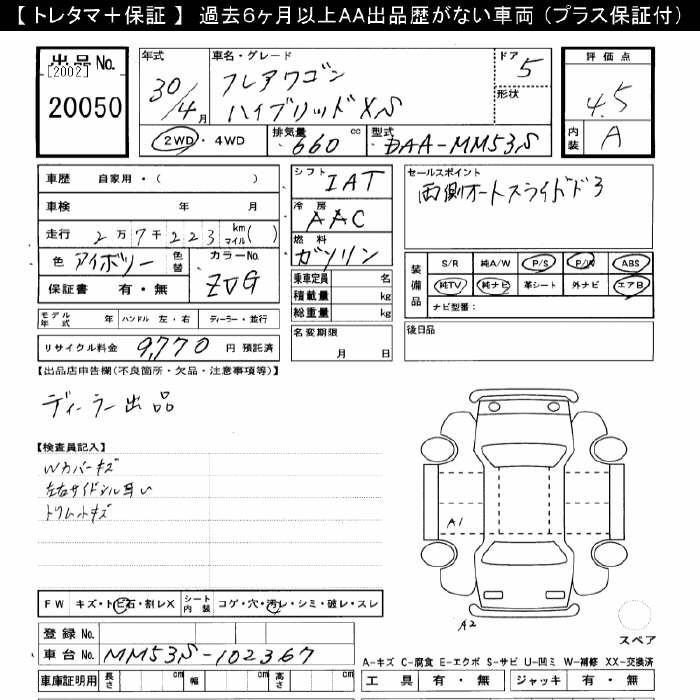 【トレタマ＋保証】 過去6ヶ月以上AA出品歴がない車両（プラス保証付）
出品No.
[2002]
20050
年式
30/4月
車名・グレード
フレアワゴン
ハイブリッドXS
ドア
5
形状
評価点
4.5
内装
A
2WD・4WD
排気量
660 cc
型式
DAA-MM53S
車歴 自家用・( )
車検 年 月
走行 2万7千223 km マイル( )
色 アイボリー 色替
カラーNo.
ZVG
保証書 有・無
シフト
IAT
冷房
AAC
燃料
ガソリン
乗車定員 名
積載量 kg
総重量 kg
セールスポイント
両側オートスライドドア
装備品
S/R 純A/W P/S P/W ABS
純TV 純ナビ 革シート 外ナビ エアB
ナビ型番：
モデル年式 年 ハンドル 左・右 ディーラー・並行
リサイクル料金 9,770 円 預託済
名変期限
月 日
後日品
【出品店申告欄(不良箇所・欠品・注意事項等)】
ディーラー出品
【検査員記入】
Wカバーキズ
左右サイドシル
トリムキズ
A1
A2
FW キズ・トビ石・割レX
シート内装 コゲ・穴・汚レ・シミ・破レ・スレ
登録No.
車台No. MM53S-102367
車庫証明用 長さ cm 幅 cm 高さ cm
スペア
A-キズ C-腐食 E-エクボ S-サビ U-凹ミ W-補修 XX-交換済
工具 有・無 ジャッキ 有・無